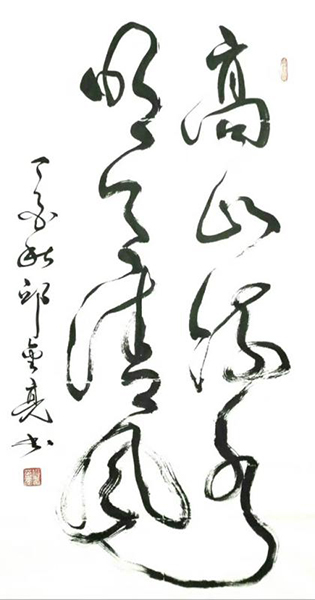 高山流水
明月清风
丁酉秋邱金亮书